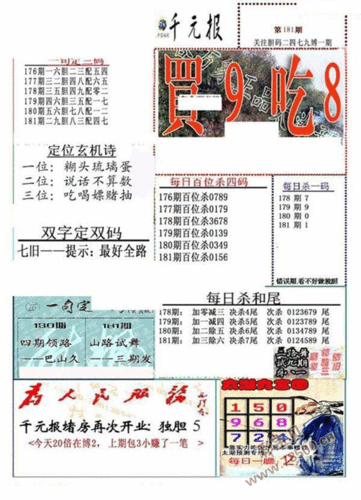 千元报
第181期
关注胆码二四七九博一期
一句定三码
176期一六胆二三配五四
177期三四胆二八配六二
178期三五胆四九配零二
179期四六胆三五配一七
180期五六胆七八配一二
181期二九胆八三配四七
買9吃8
定位玄机诗
一位：糊头琉璃蛋
二位：说话不算数
三位：吃喝嫖赌抽
双字定双码
七旧——提示：最好全路
每日百位杀四码
176期百位杀0789
177期百位杀0179
178期百位杀3678
179期百位杀0139
180期百位杀0349
181期百位杀0156
每日杀一码
178 期 7
179 期 9
180 期 0
181 期 1
错误期,看不好做独胆
一句定
180期
181期
四期领路
——巴山久
山路试舞
——三期发
每日杀和尾
178期：加零减三 决杀4尾 次杀 0123679 尾
179期：加一减四 决杀5尾 次杀 0123489 尾
180期：加二除五 决杀7尾 次杀 0134589 尾
181期：加三除六 决杀7尾 次杀 0124589 尾
为人民服务
千元报绪房再次开业：独胆 5
<今天20倍在博2，上期包3小赚了一笔>
150
968
724
每日一胆